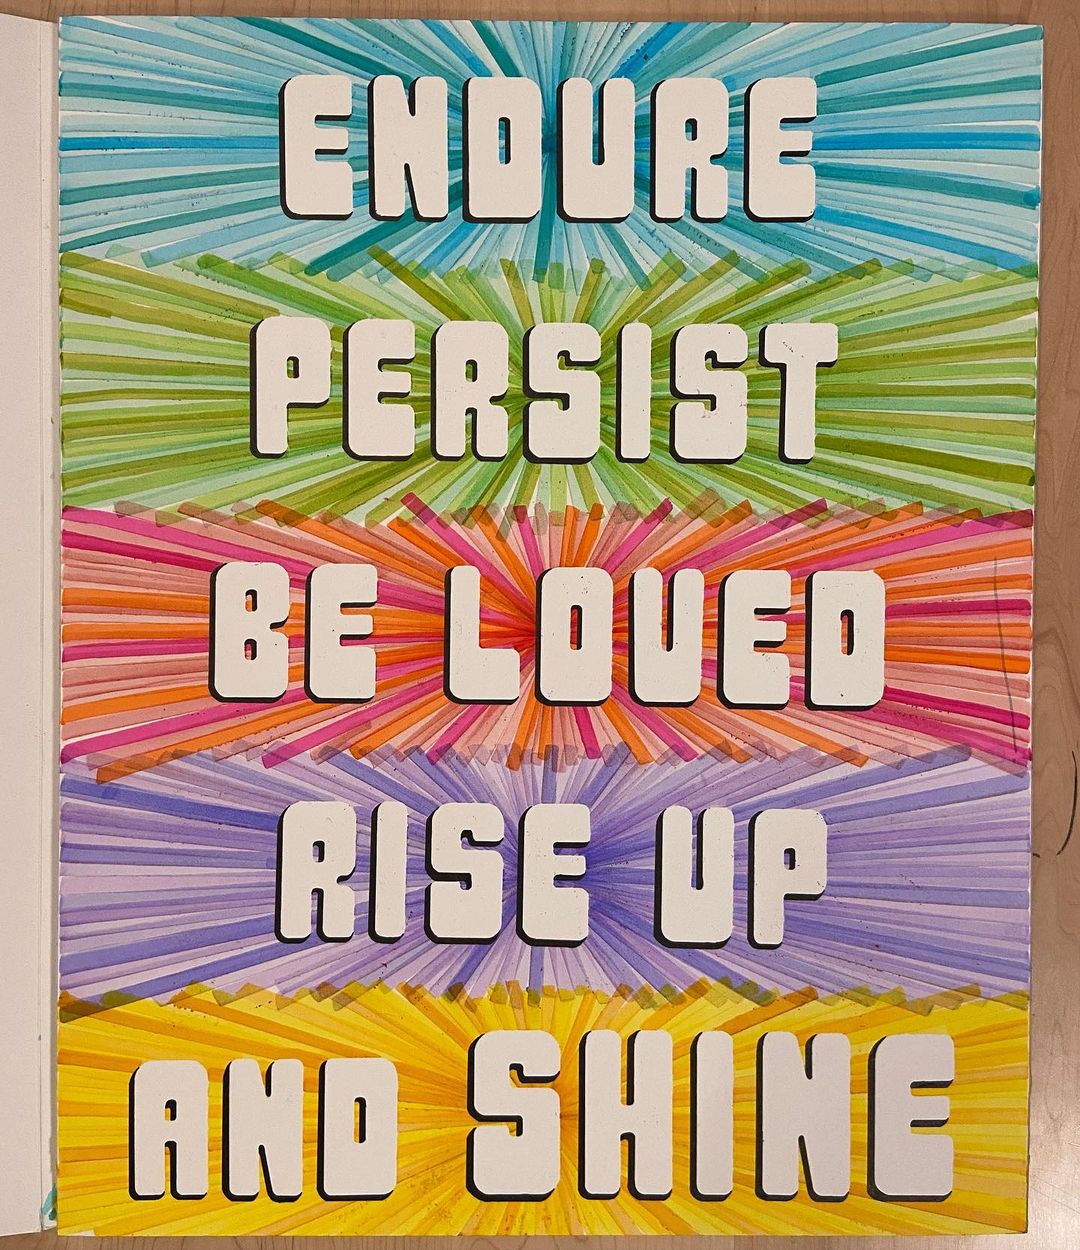 ENDURE
PERSIST
BE LOVED
RISE UP
AND SHINE